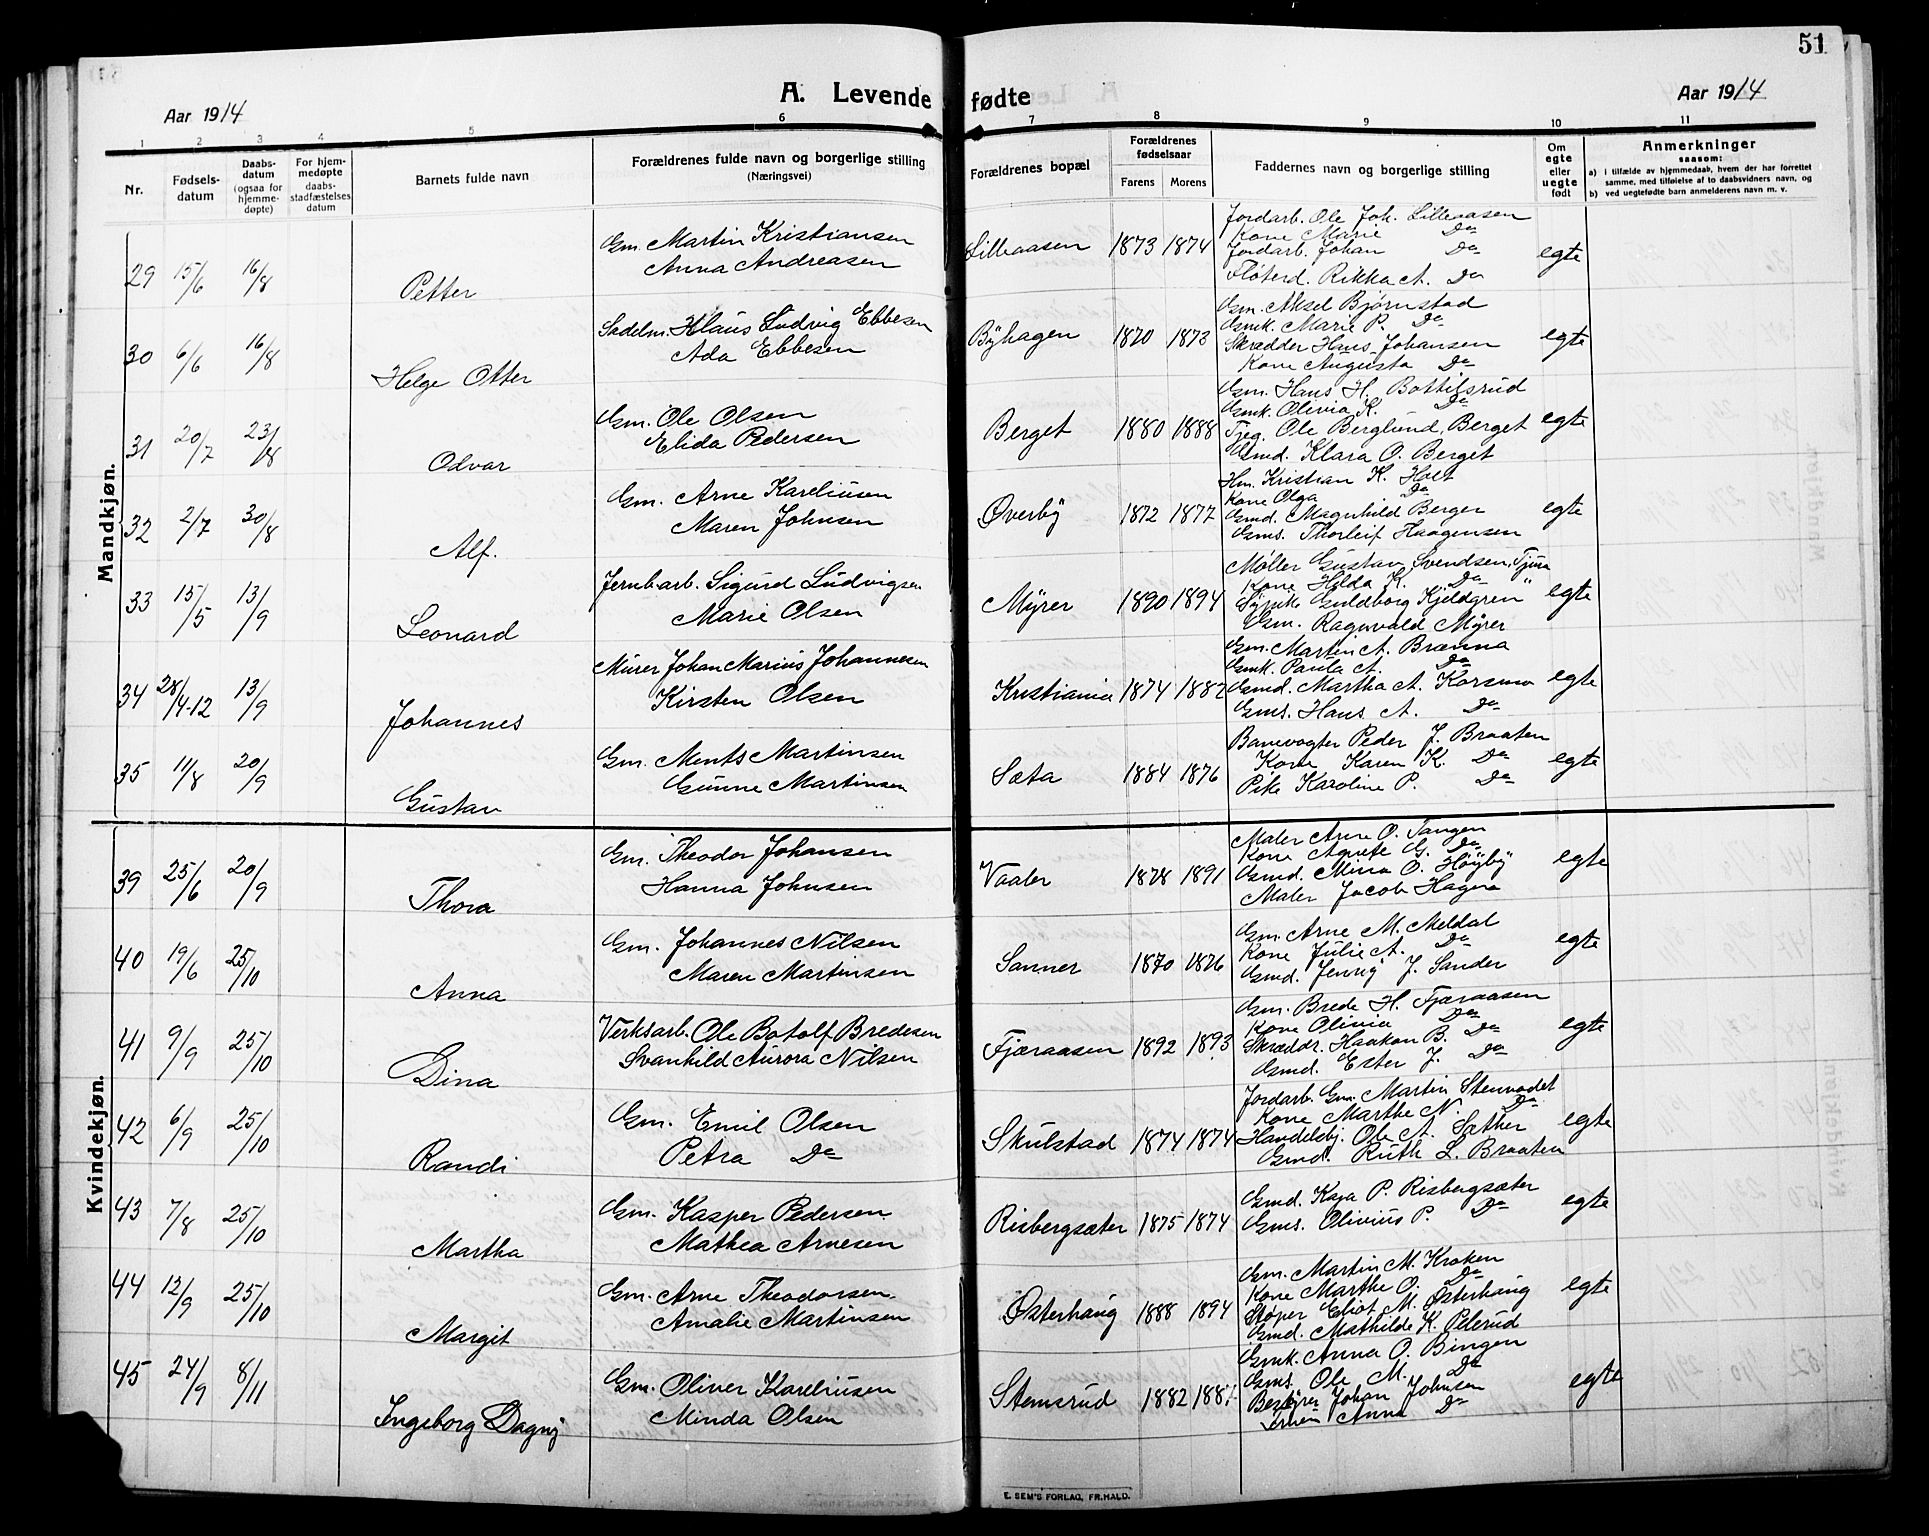 51
A. Levende fødte
Aar 1914
Aar 1914
1 2 3 4 5 6 7 8 9 10 11
Nr.
Fødsels-
datum
Daabs-
datum
(ogsaa for
hjemme-
døpte)
For hjem-
medøpte
daabs-
stadfæstelses
datum
Barnets fulde navn
Forældrenes fulde navn og borgerlige stilling
(Næringsvei)
Forældrenes bopæl
Forældrenes
fødselsaar
Farens
Morens
Faddernes navn og borgerlige stilling
Om
egte
eller
uegte
født
Anmerkninger
saasom:
a) i tilfælde av hjemmedaab, hvem der har forrettet
samme, med tilføielse af to daabsvidners navn, og
b) ved uegtefødte barn anmelderens navn m. v.
Mandkjøn.
29 15/6 16/8
Petter
Gm. Martin Kristiansen
Anna Andreasen
Lilleaasen 1873 1874
Jordarb. Ole Joh. Lilleaasen
Kone Marie Do
Jordarb. Johan Do
Fløterd. Rikka A. Do
egte
30 6/6 16/8
Helge Otter
Sadelm. Klaus Ludvig Ebbesen
Ada Ebbesen
Byhagen 1870 1873
Gm. Aksel Bjørnstad
Gmk. Marie P. Do
Skrædder Hans Johansen
Kone Augusta Do
egte
31 20/7 23/8
Odvar
Gm. Ole Olsen
Elida Pedersen
Berget 1880 1888
Gm. Hans H. Bottilsrud
Gmk. Olivia K. Do
Tjeg. Ole Berglund, Berget
Gmd. Klara O. Berget
egte
32 2/7 30/8
Alf.
Gm. Arne Kareliusen
Maren Johnsen
Øverby 1872 1877
Hm. Kristian K. Holt
Kone Olga Do
Gmd. Magnhild Berger
Gms. Thorleif Haagensen
egte
33 15/5 13/9
Leonard
Jernbarb. Sigurd Ludvigsen
Marie Olsen
Myrer 1890 1894
Møller Gustav Svendsen, Tjura
Kone Hilda K. Do "
Sypike Guldborg Kjeldgren
Gm. Ragnvald Myrer
egte
34 28/4-12 13/9
Johannes
Murer Johan Marius Johannesen
Kirsten Olsen
Kristiania 1874 1882
Gm. Martin A. Brænna
Gmk. Paula A. Do
Gmd. Martha A. Korsmo
Gms. Hans A. Do
egte
35 11/8 20/9
Gustav
Gm. Ments Martinsen
Gunne Martinsen
Sæta 1884 1876
Banevogter Peder J. Braaten
Kone Karen K. Do
Pike Karoline P. Do
egte
Kvindekjøn.
39 25/6 20/9
Thora
Gm. Theodor Johansen
Hanna Johnsen
Vaaler 1878 1891
Maler Arne O. Tangen
Kone Agnete G. Do
Gmd. Mina O. Høyby
Maler Jacob Hagen
egte
40 19/6 25/10
Anna
Gm. Johannes Nilsen
Maren Martinsen
Sanner 1870 1876
Gm. Arne M. Meldal
Kone Julie A. Do
Gmd. Jenny J. Sander
egte
41 9/9 25/10
Dina
Verksarb. Ole Botolf Bredesen
Svanhild Aurora Nilsen
Fjæraasen 1892 1893
Gm. Brede H. Fjæraasen
Kone Olivia Do
Skræddr. Haakon B. Do
Gmd. Ester J. Do
egte
42 6/9 25/10
Randi
Gm. Emil Olsen
Petra Do
Skulstad 1874 1874
Jordarb. Gm. Martin Stenvadet
Kone Marthe N. Do
Handelsbj. Ole A. Sæther
Gmd. Ruth L. Braaten
egte
43 7/8 25/10
Martha
Gm. Kasper Pedersen
Mathea Arnesen
Risbergsæter 1875 1874
Gmd. Kaja P. Risbergsæter
Gms. Olivius P. Do
egte
44 12/9 25/10
Margit
Gm. Arne Theodorsen
Amalie Martinsen
Østerhaug 1888 1894
Gm. Martin M. Kroken
Kone Marthe O. Do
Støper Eliot M. Østerhaug
Gmd. Mathilde K. Pelerud
egte
45 24/9 8/11
Ingeborg Dagny
Gm. Oliver Kareliusen
Minda Olsen
Stemsrud 1882
Gmk. Anna O. Bingen
Gms. Ole M. Do
Bestyrer Johan Johnsen
Anna Do
egte
E. SEM'S FORLAG, FR.HALD.